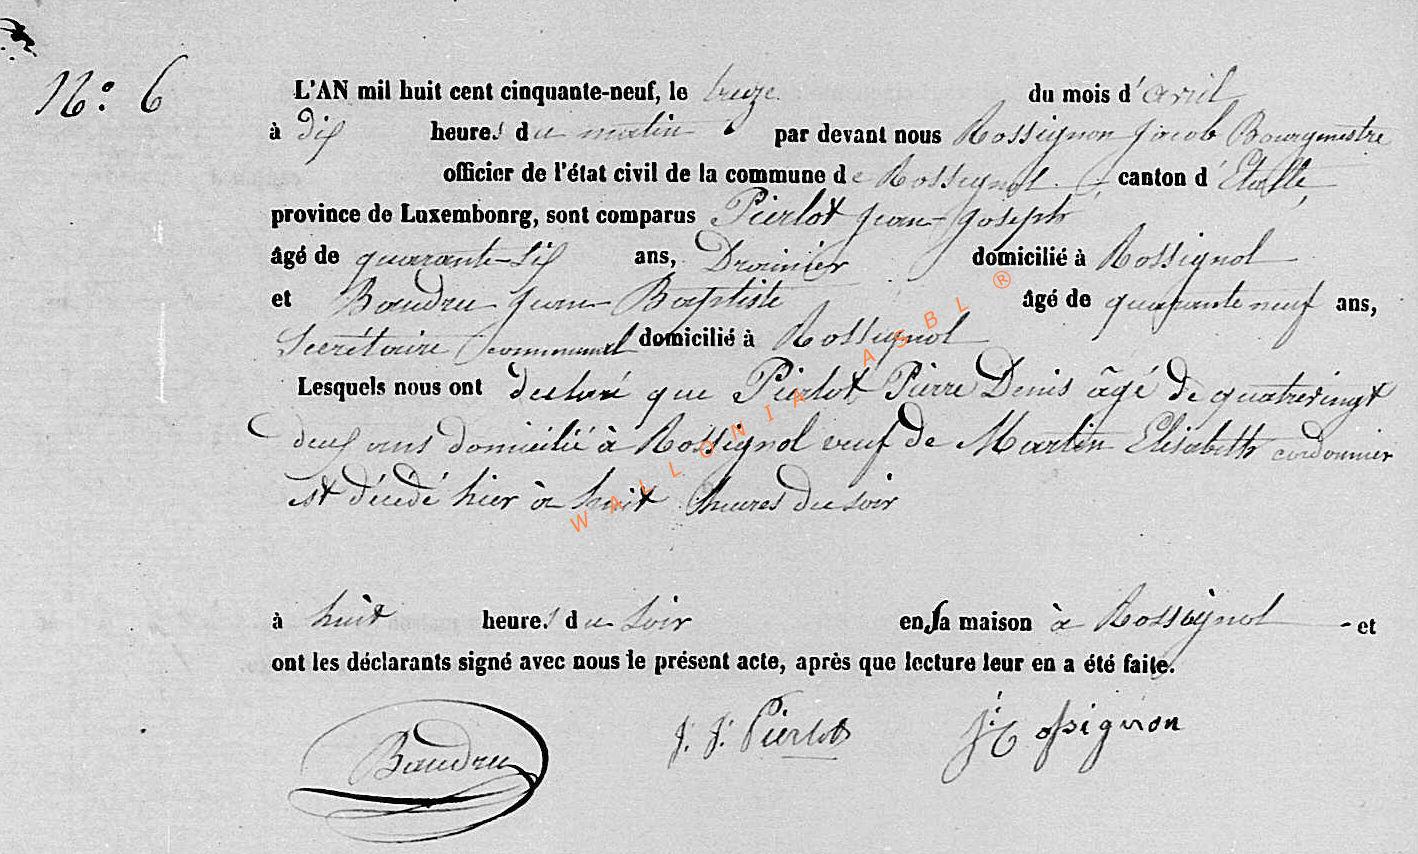 N° 6
L'AN mil huit cent cinquante-neuf, le treize du mois d'avril
à dix heures du matin par devant nous Rossignon Jacob Bourgmestre
officier de l'état civil de la commune de Rossignol canton d'Etalle,
province de Luxembonrg, sont comparus Pierlot Jean-Joseph
âgé de quarante-six ans, domicilié à Rossignol
et Baudru Jean Baptiste âgé de quarante neuf ans,
Secrétaire communal domicilié à Rossignol
Lesquels nous ont declaré que Pierlot Pierre Denis âgé de quatrevingt
deux ans domicilié à Rossignol veuf de Martin Elisabeth cordonnier
est décédé hier à huit heures du soir
à huit heures du soir en sa maison à Rossignol - et
ont les déclarants signé avec nous le présent acte, après que lecture leur en a été faite.
Baudru J. J. Pierlot J. Rossignon
WALLONIA ASBL ®